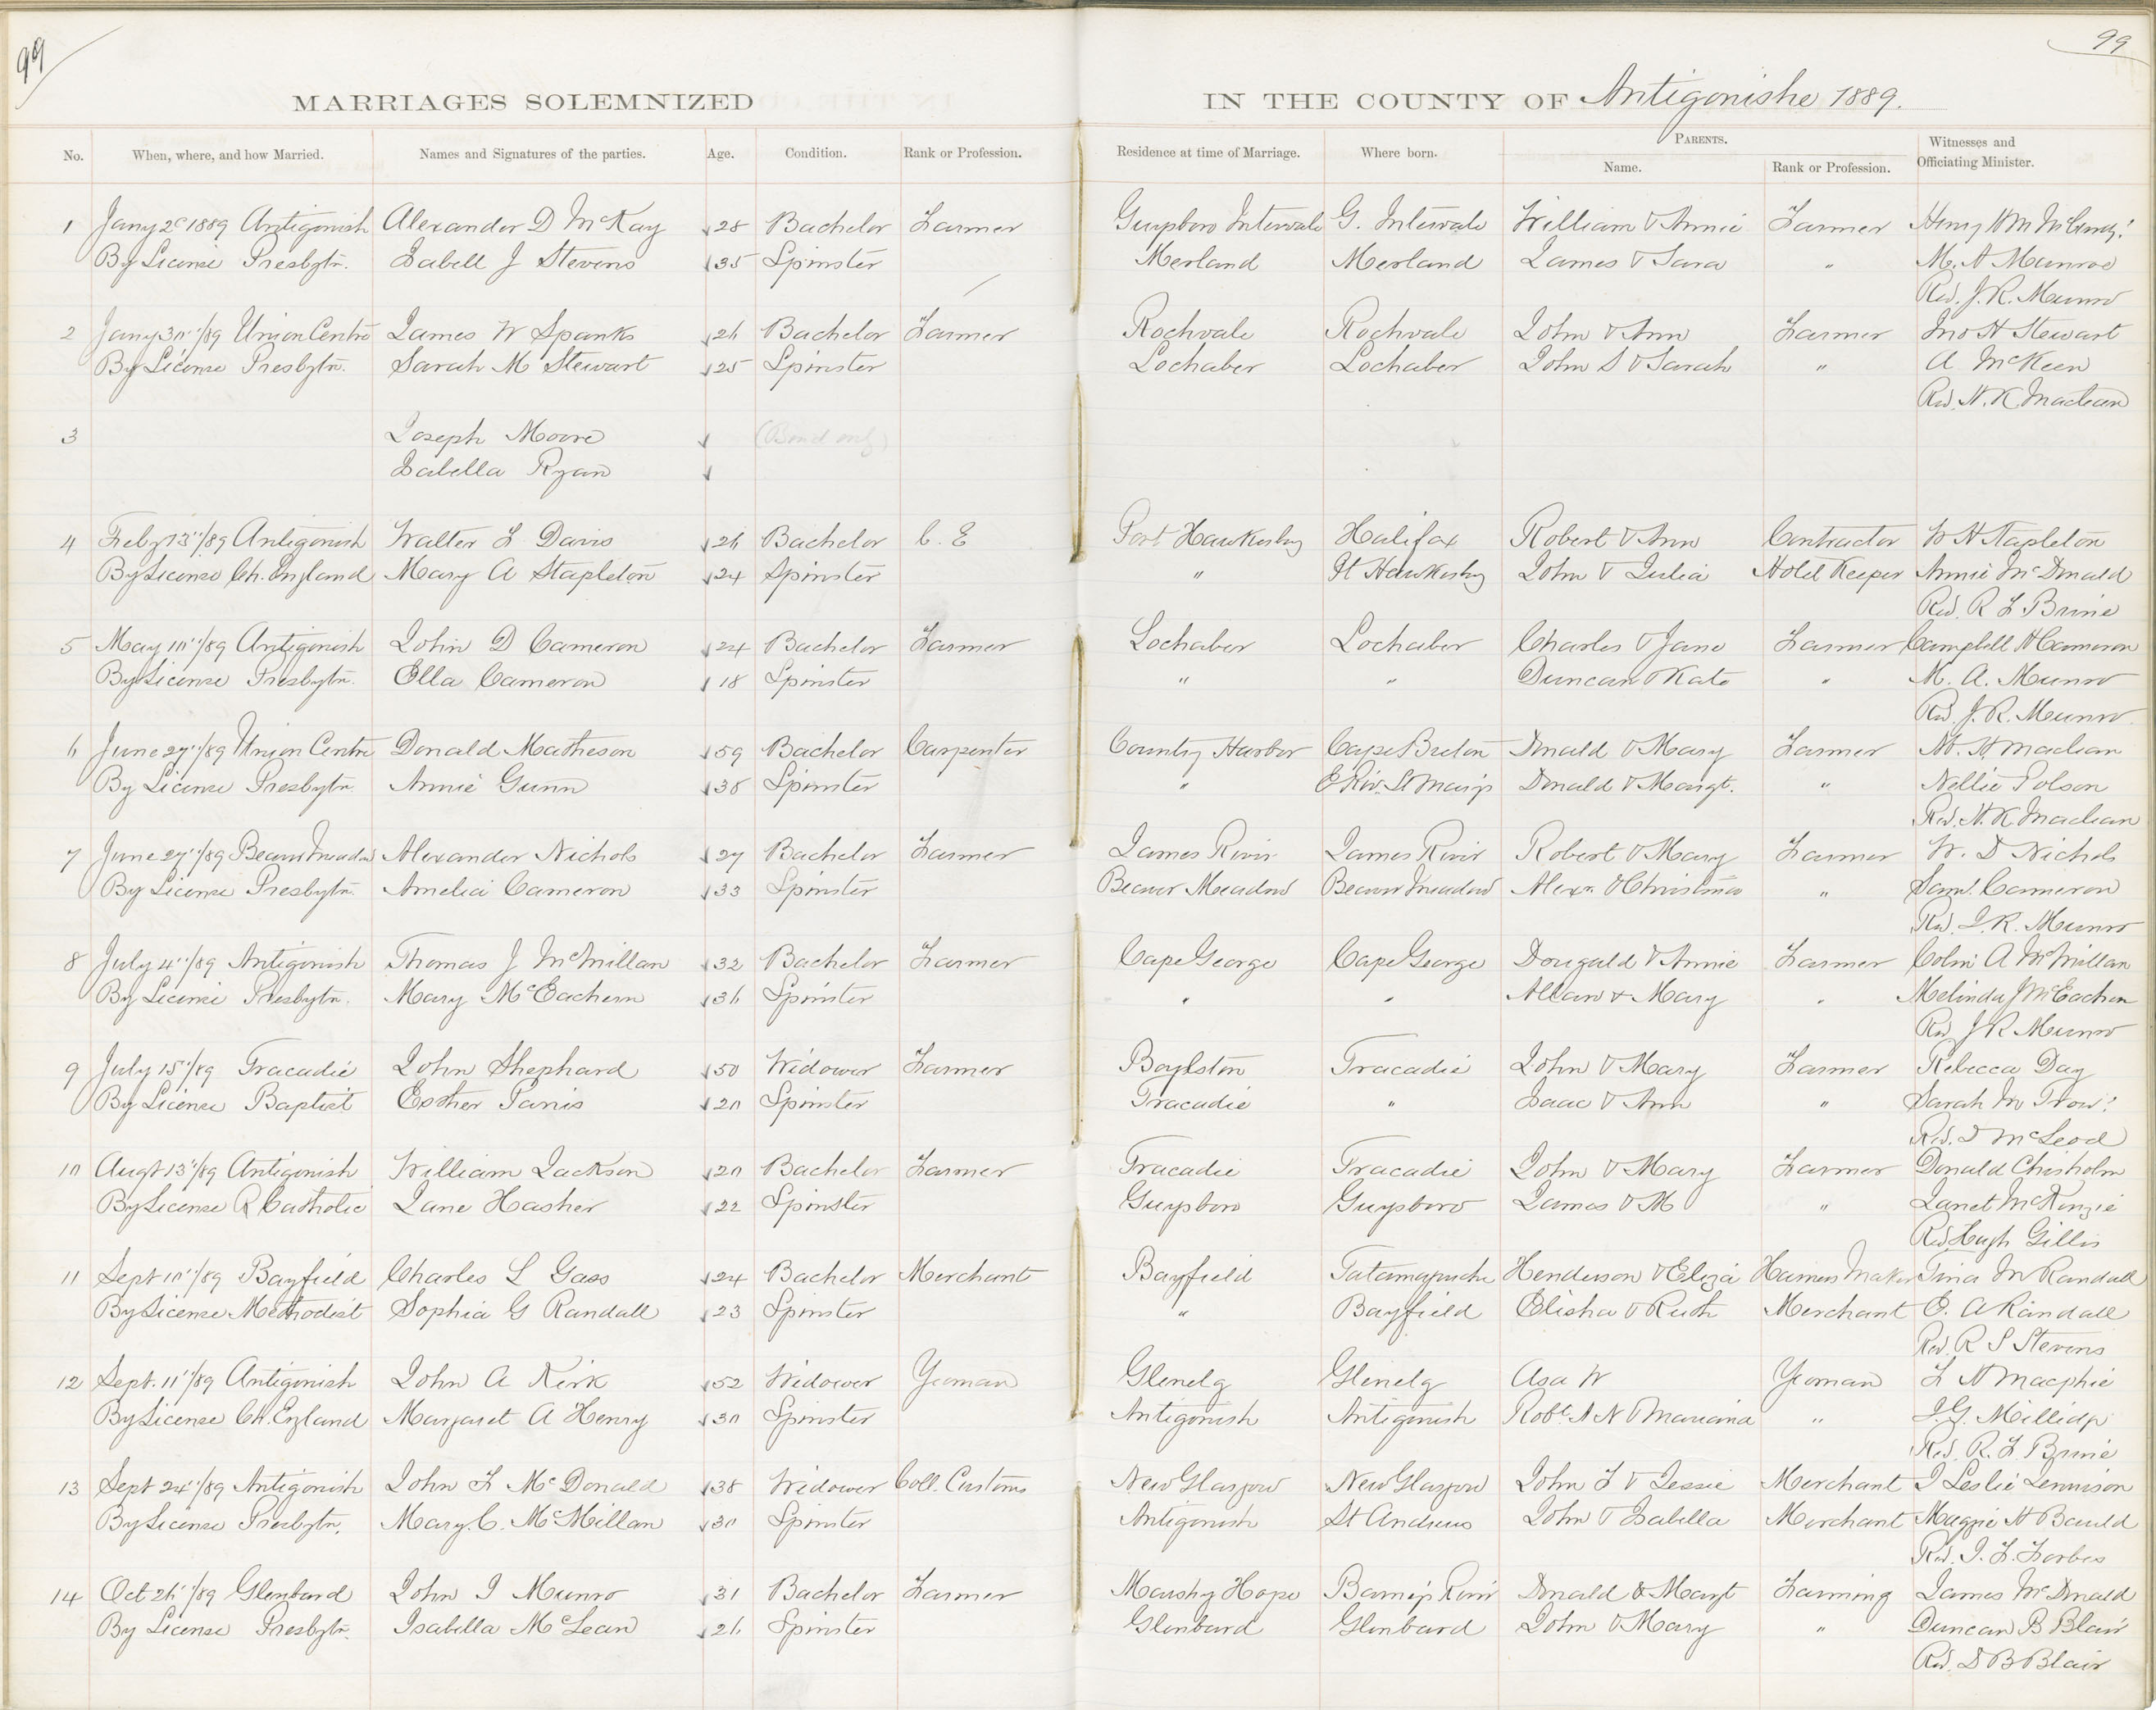 99
99
MARRIAGES SOLEMNIZED IN THE COUNTY OF Antigonishe 1889.
No. When, where, and how Married. Names and Signatures of the parties. Age. Condition. Rank or Profession. Residence at time of Marriage. Where born. PARENTS. Name. Rank or Profession. Witnesses and Officiating Minister.
1 Jany 2d 1889 Antigonish Alexander D McKay 28 Bachelor Farmer Guysboro Intervale G. Intervale William & Annie Farmer Henry
By License Presbytn. Isabell J Stevens 35 Spinster Merland Merland James & Sara " M. A Munroe
Revd. J. R. Munro
2 Jany 30"/89 Union Centre James W Spanks 26 Bachelor Farmer Rochvale Rochvale John & Ann Farmer Jno H Stewart
By License Presbytn. Sarah M Stewart 25 Spinster Lochaber Lochaber John S & Sarah " A McKeen
Revd. H. K Maclean
3 Joseph Moore (Bond only)
Isabella Ryan
4 Feby 13"/89 Antigonish Walter F Davis 26 Bachelor C. E Port Hawkesbury Halifax Robert & Ann Contractor W H Stapleton
By License Ch. England Mary A Stapleton 24 Spinster " Pt Hawkesby John & Julia Hotel Keeper Annie McDonald
Revd. R F Brine
5 May 10"/89 Antigonish John D Cameron 24 Bachelor Farmer Lochaber Lochaber Charles & Jane Farmer Campbell H Cameron
By License Presbytn. Ella Cameron 18 Spinster " " Duncan & Kate " M. A. Munro
Revd. J. R. Munro
6 June 27"/89 Union Centre Donald Matheson 59 Bachelor Carpenter Country Harbor Cape Breton Donald & Mary Farmer H. Maclean
By License Presbytn. Annie Gunn 38 Spinster " E Riv. St Marys Donald & Margt. " Nellie Polson
Revd. H. K Maclean
7 June 27"/89 Beaver Meadow Alexander Nichols 27 Bachelor Farmer James River James River Robert & Mary Farmer W. D Nichols
By License Presbytn. Amelia Cameron 33 Spinster Beaver Meadow Beaver Meadow Alexr. & Christina " Saml. Cameron
Revd. J. R. Munro
8 July 4"/89 Antigonish Thomas J McMillan 32 Bachelor Farmer Cape George Cape George Dougald & Annie Farmer Colin A McMillan
By License Presbytn. Mary McEachern 36 Spinster " " Allan & Mary " Melinda J McEachern
Revd J R Munro
9 July 15"/89 Tracadie John Shephard 50 Widower Farmer Boylston Tracadie John & Mary Farmer Rebecca Day
By License Baptist Esther Paris 20 Spinster Tracadie " Isaac & Ann " Sarah M
Revd. D McLeod
10 Augt 13"/89 Antigonish William Jackson 20 Bachelor Farmer Tracadie Tracadie John & Mary Farmer Donald Chisholm
By License R Catholic Jane Hasher 22 Spinster Guysboro Guysboro James & M " Janet McKenzie
Revd Hugh Gillis
11 Sept 10"/89 Bayfield Charles L Gass 24 Bachelor Merchant Bayfield Tatamagouche Henderson & Eliza Harness Maker Tina M Randall
By License Methodist Sophia G Randall 23 Spinster " Bayfield Elisha & Ruth Merchant E. A Randall
Revd. R S Stevens
12 Sept. 11"/89 Antigonish John A Kirk 52 Widower Yeoman Glenelg Glenelg Asa W Yeoman F H Macphie
By License Ch. England Margaret A Henry 30 Spinster Antigonish Antigonish Robt. A N & Mariana " J. G. Millidge
Revd. R. F Brine
13 Sept 24"/89 Antigonish John F McDonald 38 Widower Coll. Customs New Glasgow New Glasgow John F & Jessie Merchant J Leslie Jennison
By License Presbytn. Mary. C. McMillan 30 Spinster Antigonish St Andrews John & Isabella Merchant Maggie H Bauld
Revd. J. F. Forbes
14 Oct 26"/89 Glenbard John J Munro 31 Bachelor Farmer Marshy Hope Barneys River Donald & Margt Farming James McDonald
By License Presbytn. Isabella McLean 26 Spinster Glenbard Glenbard John & Mary " Duncan B Blair
Revd. D B Blair